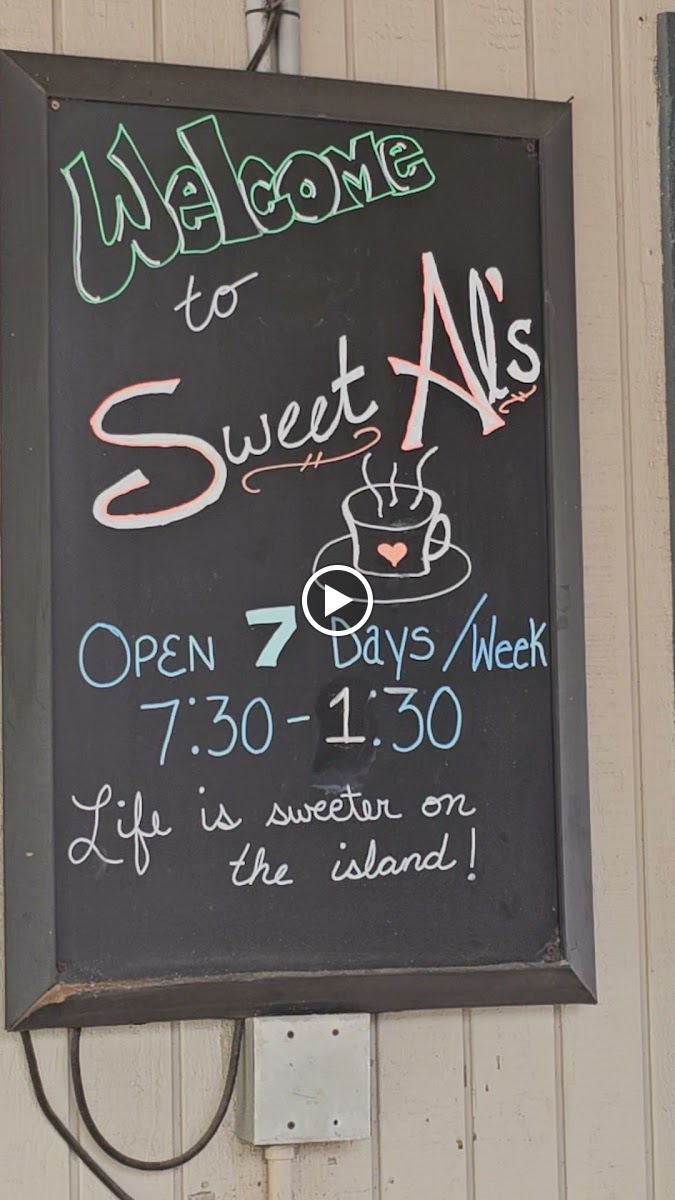 Welcome
to
Sweet Al's
OPEN 7 Days/Week
7:30-1:30
Life is sweeter on
the island!